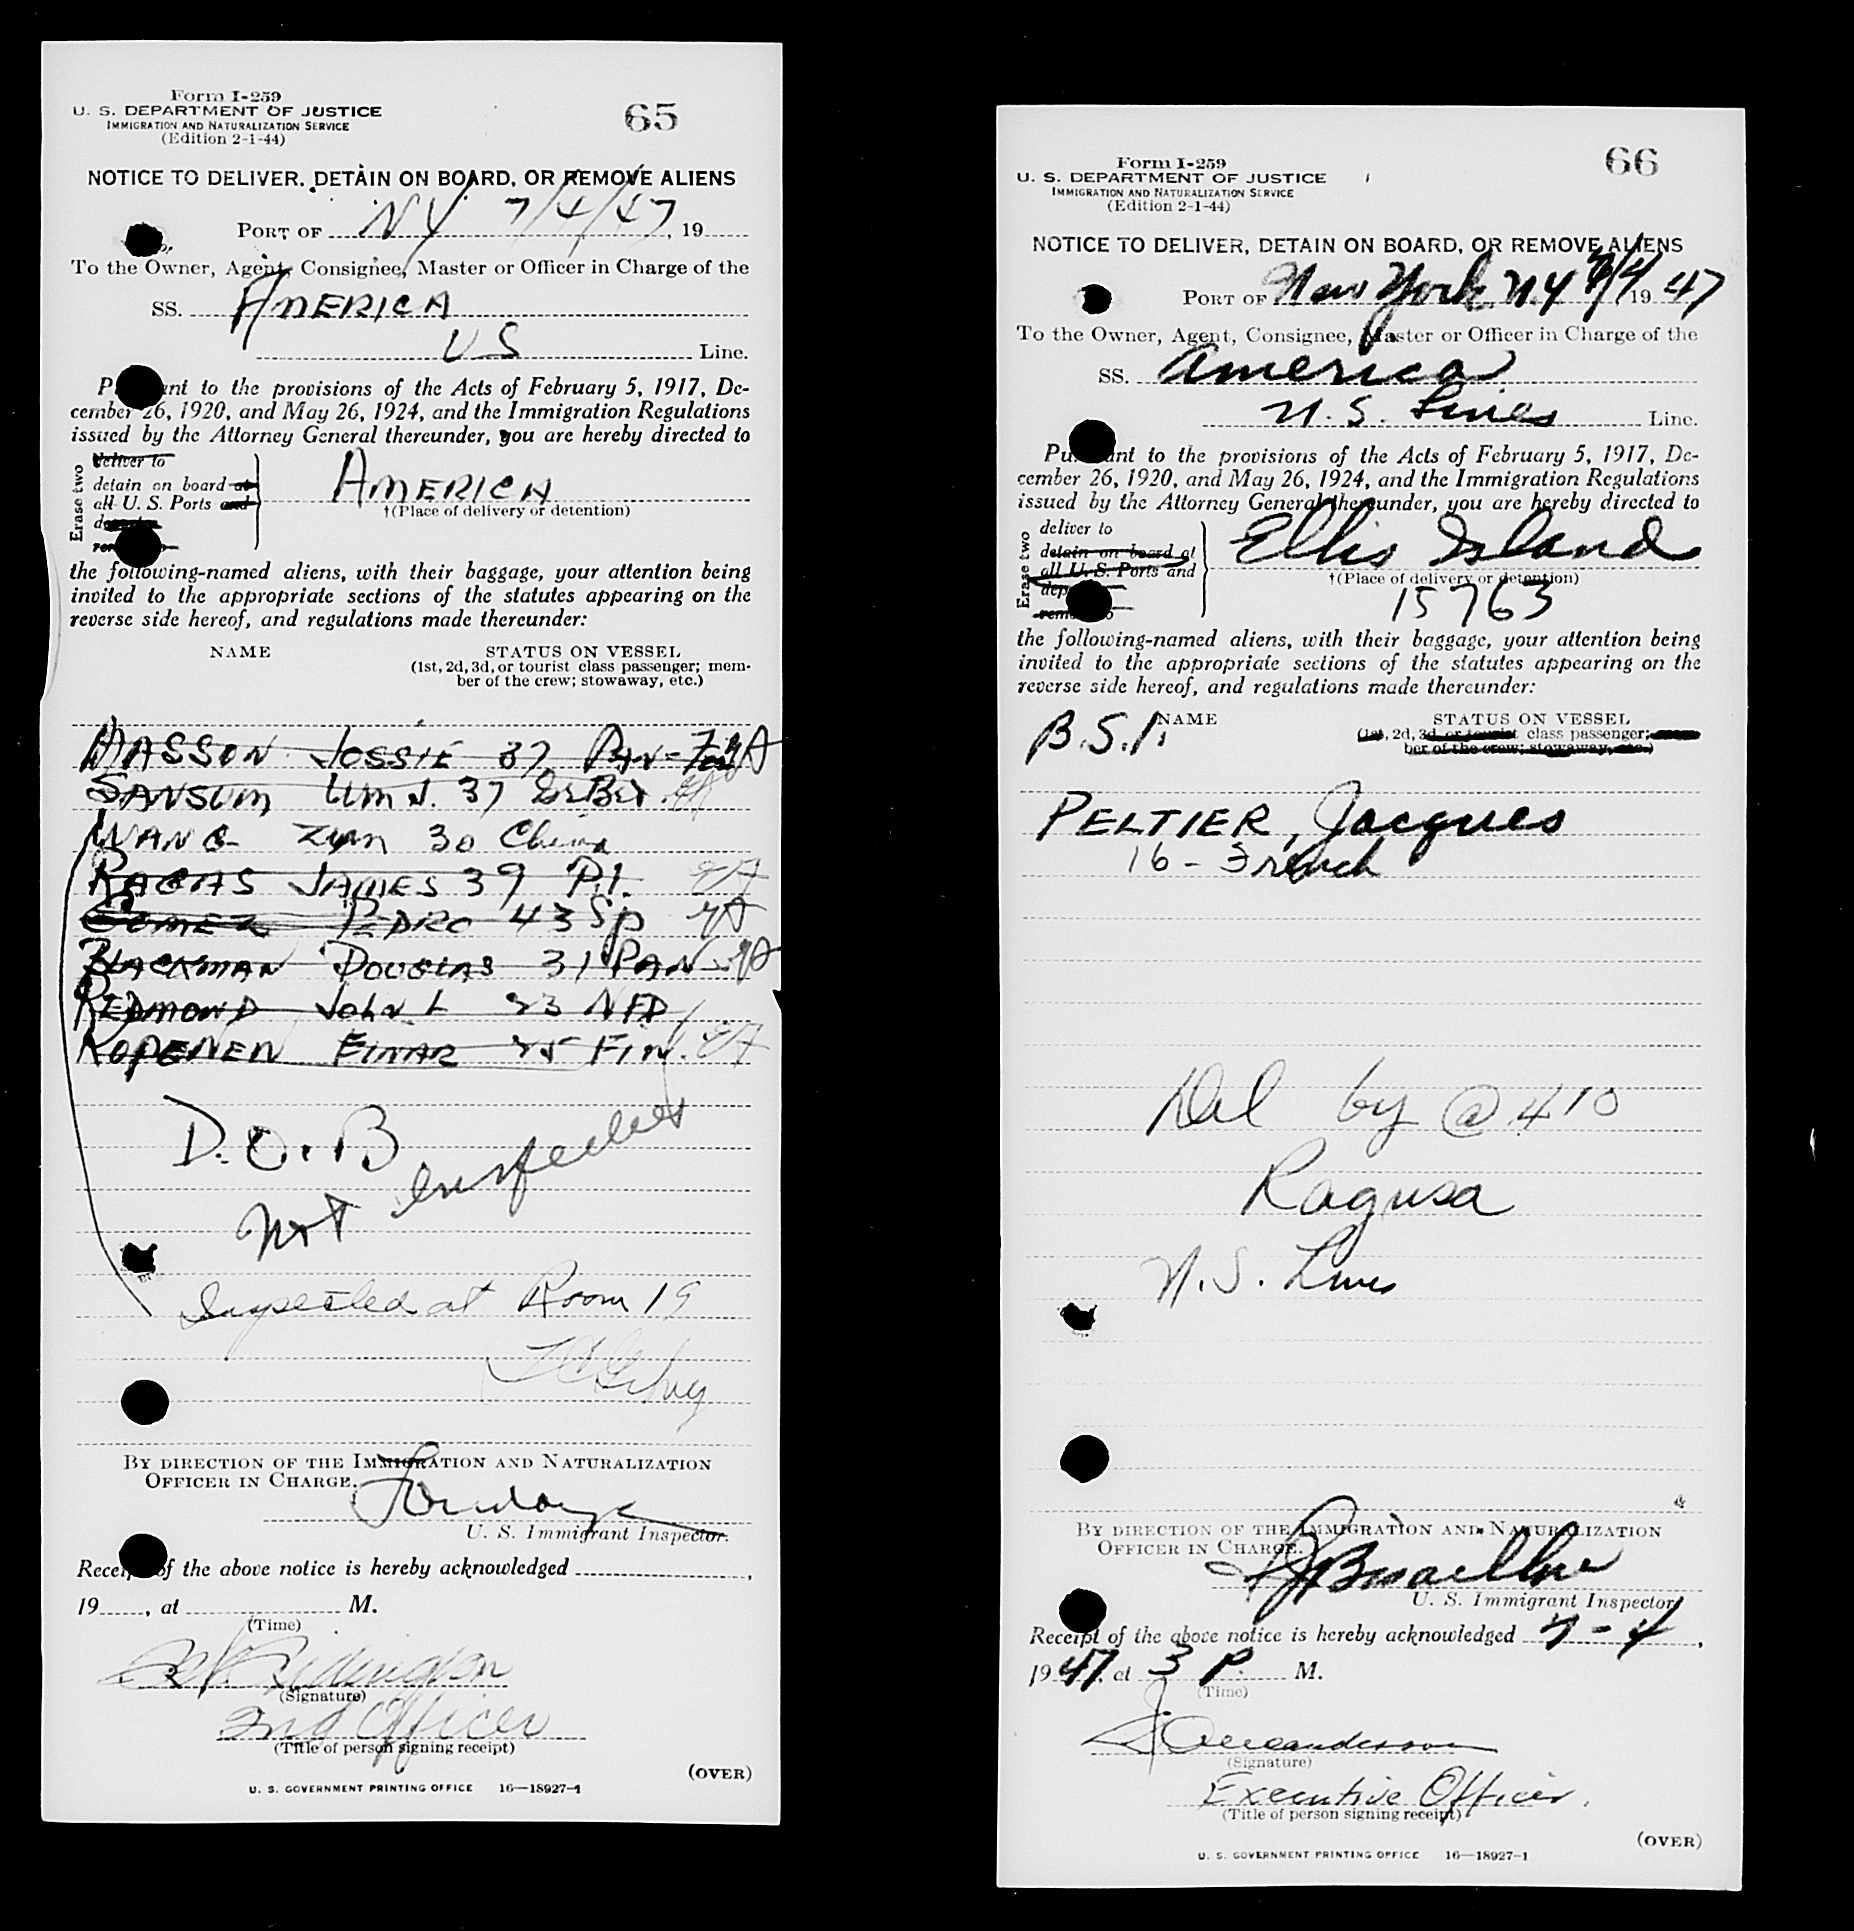 Form I-259
U. S. DEPARTMENT OF JUSTICE
IMMIGRATION AND NATURALIZATION SERVICE
(Edition 2-1-44)
65
NOTICE TO DELIVER, DETAIN ON BOARD, OR REMOVE ALIENS
PORT OF NY 7/4/47, 19
To the Owner, Agent, Consignee, Master or Officer in Charge of the
SS. AMERICA
US Line.
to the provisions of the Acts of February 5, 1917, De-
cember 26, 1920, and May 26, 1924, and the Immigration Regulations
issued by the Attorney General thereunder, you are hereby directed to
Erase two
deliver to
detain on board at
all U. S. Ports and
AMERICA
†(Place of delivery or detention)
the following-named aliens, with their baggage, your attention being
invited to the appropriate sections of the statutes appearing on the
reverse side hereof, and regulations made thereunder:
NAME STATUS ON VESSEL
(1st, 2d, 3d, or tourist class passenger; mem-
ber of the crew; stowaway, etc.)
MASSON JOSSIE 37 PAN-
SANSUM Wm J. 37
WANG ZYM 30 China
RAGAS JAMES 39 P.I.
GOMEZ PEDRO 43 Sp
BLACKMAN DOUGLAS 31 PAN
REDMOND JOHN L 23 NFD
KOPENEN EINAR 25 FIN.
D.O.B.
not inspected
Inspected at Room 19
BY DIRECTION OF THE IMMIGRATION AND NATURALIZATION
OFFICER IN CHARGE.
U. S. Immigrant Inspector.
Receipt of the above notice is hereby acknowledged ,
19 , at M.
(Time)
(Signature)
2nd Officer
(Title of person signing receipt)
(OVER)
U. S. GOVERNMENT PRINTING OFFICE 16—18927-1
Form I-259
U. S. DEPARTMENT OF JUSTICE
IMMIGRATION AND NATURALIZATION SERVICE
(Edition 2-1-44)
66
NOTICE TO DELIVER, DETAIN ON BOARD, OR REMOVE ALIENS
PORT OF New York N.Y 7/4/ 19 47
To the Owner, Agent, Consignee, Master or Officer in Charge of the
SS. America
U.S. Lines Line.
Pursuant to the provisions of the Acts of February 5, 1917, De-
cember 26, 1920, and May 26, 1924, and the Immigration Regulations
issued by the Attorney General thereunder, you are hereby directed to
Erase two
deliver to
detain on board at
all U. S. Ports and
Ellis Island
†(Place of delivery or detention)
15763
the following-named aliens, with their baggage, your attention being
invited to the appropriate sections of the statutes appearing on the
reverse side hereof, and regulations made thereunder:
B.S.I. NAME STATUS ON VESSEL
(1st, 2d, 3d, or tourist class passenger;
ber of the crew; stowaway, etc.)
PELTIER, Jacques
16 - French
Del by @ 4 10
Ragusa
U.S. Lines
BY DIRECTION OF THE IMMIGRATION AND NATURALIZATION
OFFICER IN CHARGE.
U. S. Immigrant Inspector
Receipt of the above notice is hereby acknowledged 7-4,
1947, at 3 P. M.
(Time)
(Signature)
Executive Officer.
(Title of person signing receipt)
(OVER)
U. S. GOVERNMENT PRINTING OFFICE 16—18927-1